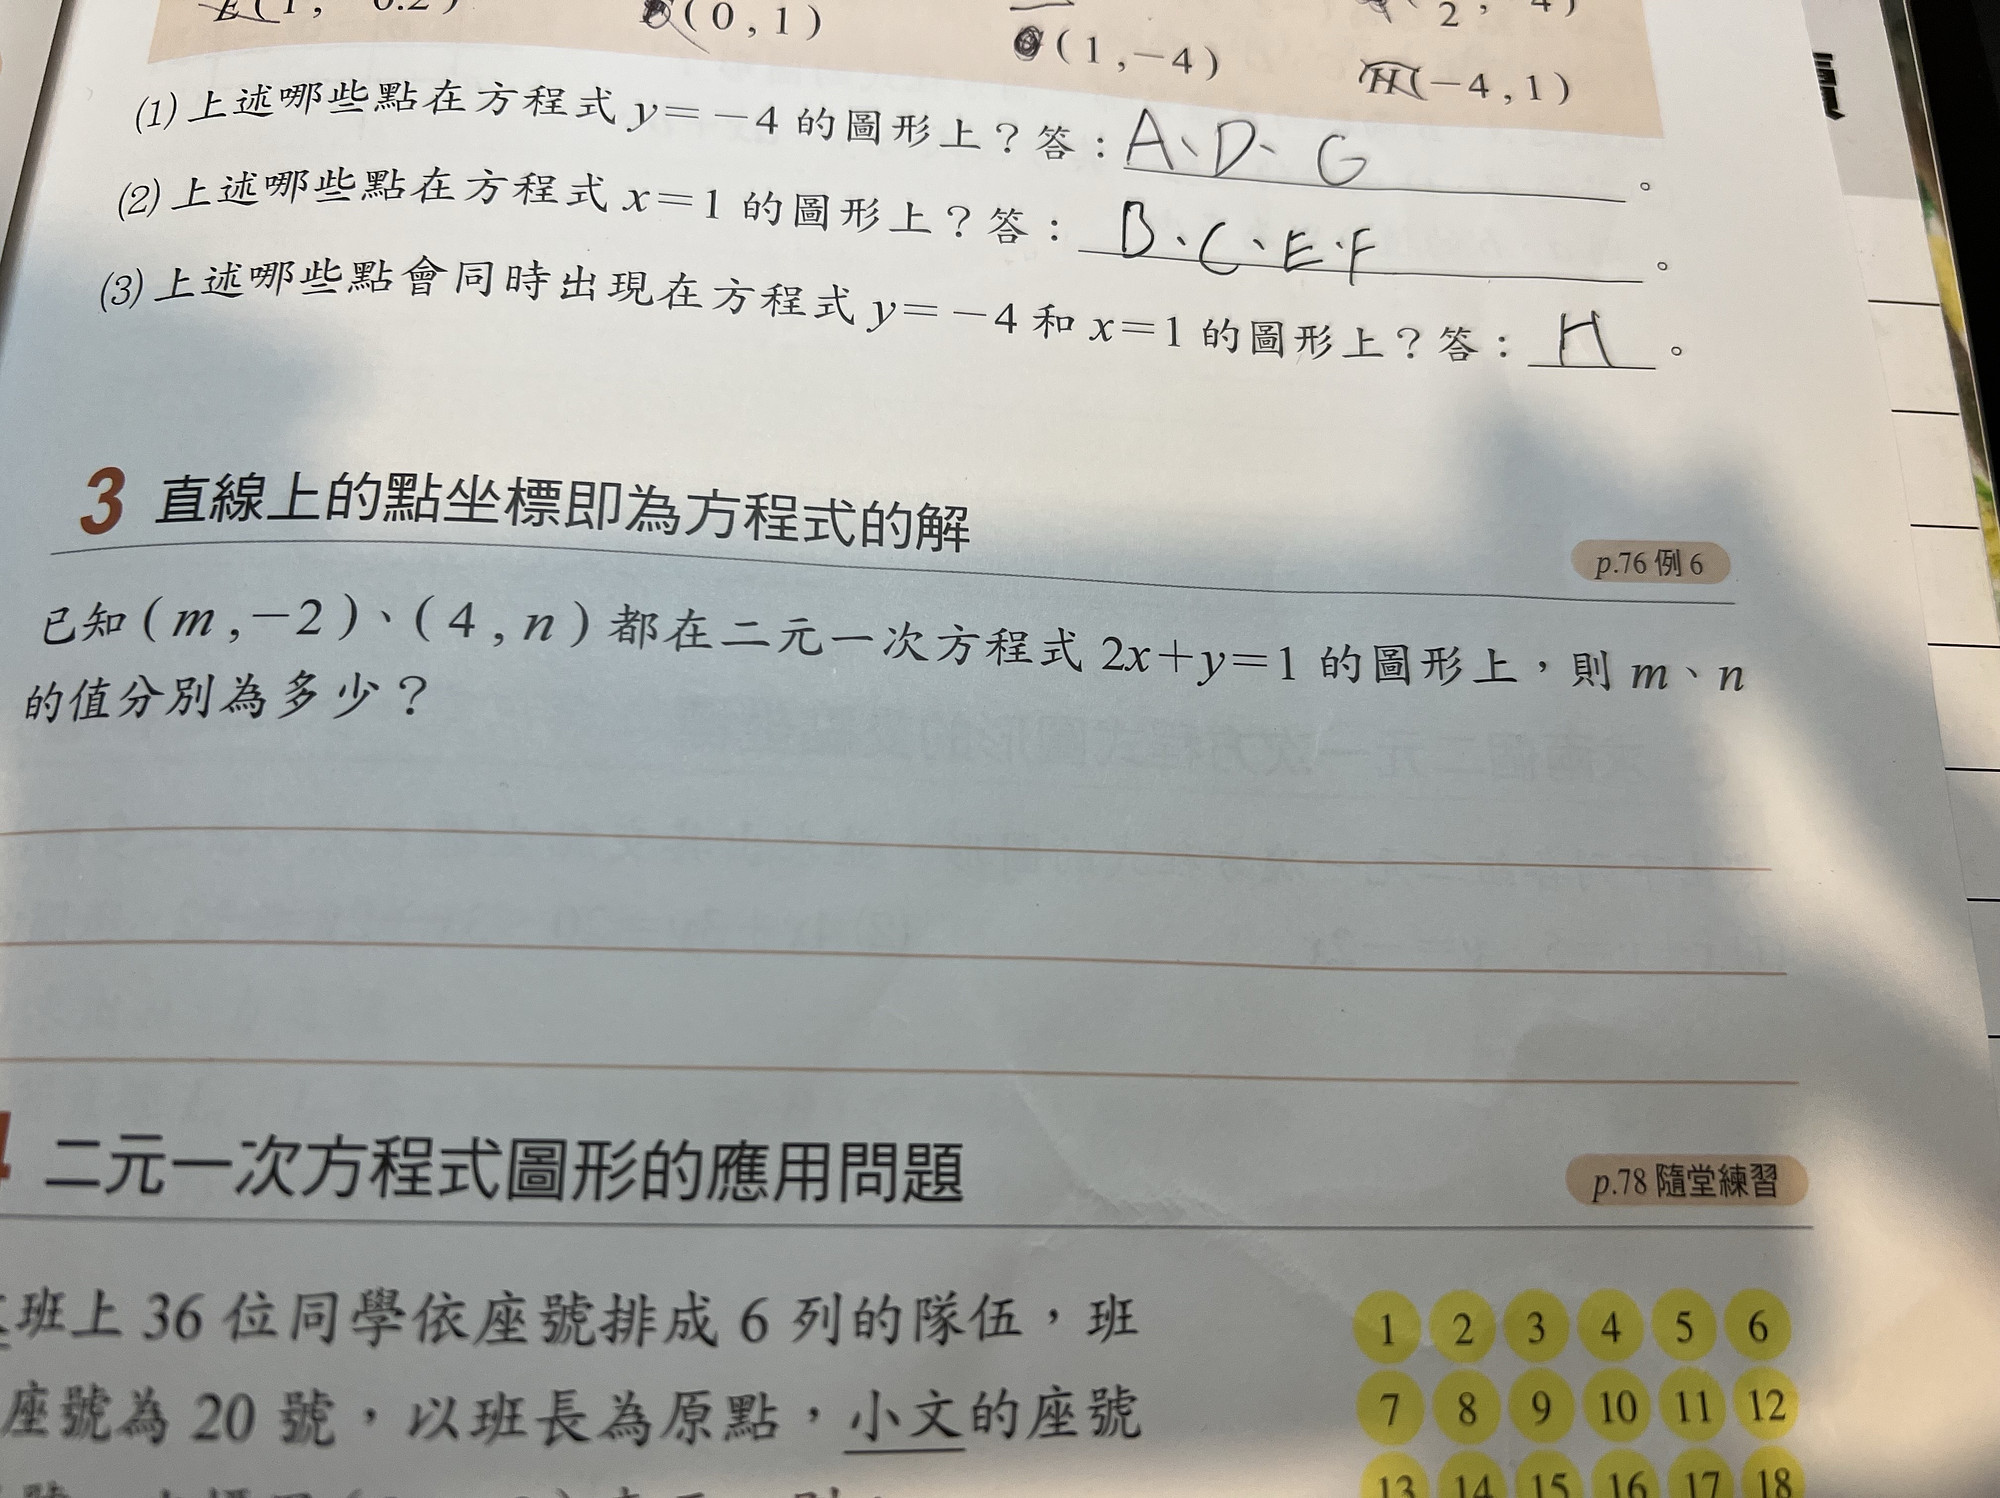 (1, -0.2)
(0,1)
(1,-4)
H(-4,1)
(1)上述哪些點在方程式 y=-4 的圖形上？答：A、D、G。
(2)上述哪些點在方程式 x=1 的圖形上？答：B、C、E、F。
(3)上述哪些點會同時出現在方程式 y=-4 和 x=1 的圖形上？答：H。
3 直線上的點坐標即為方程式的解
p.76 例 6
已知(m,-2)、(4,n)都在二元一次方程式 2x+y=1 的圖形上，則 m、n
的值分別為多少？
二元一次方程式圖形的應用問題
p.78 隨堂練習
班上 36 位同學依座號排成 6 列的隊伍，班
座號為 20 號，以班長為原點，小文的座號
1 2 3 4 5 6
7 8 9 10 11 12
13 14 15 16 17 18